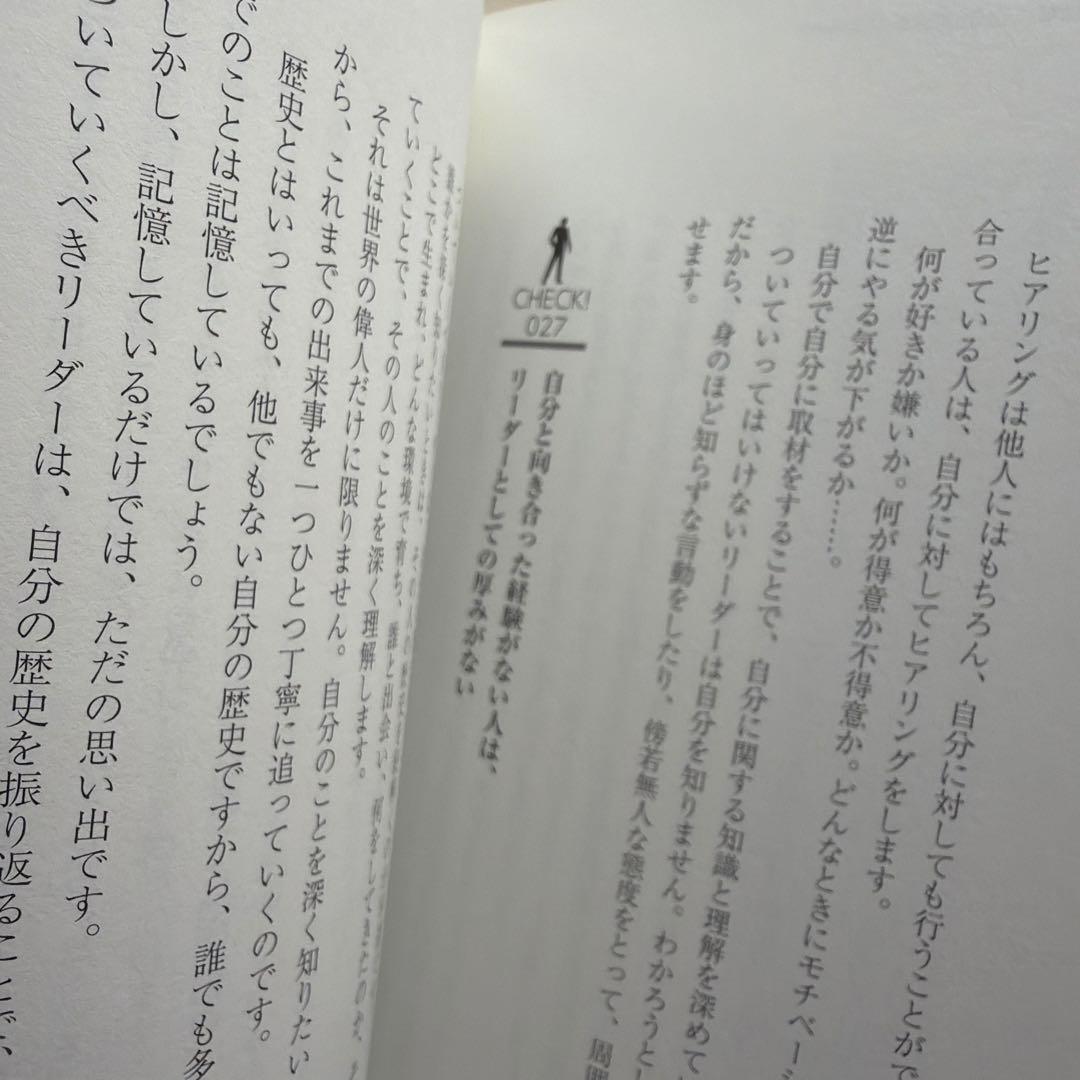 ヒアリングは他人にはもちろん、自分に対しても行うことがで
合っている人は、自分に対してヒアリングをします。
何が好きか嫌いか。何が得意か不得意か。どんなときにモチベーシ
逆にやる気が下がるか……。
自分で自分に取材をすることで、自分に関する知識と理解を深めて
ついていってはいけないリーダーは自分を知りません。わかろうとし
だから、身のほど知らずな言動をしたり、傍若無人な態度をとって、周囲
せます。
CHECK!
027
自分と向き合った経験がない人は、
リーダーとしての厚みがない
どこで生まれ、どんな環境で育ち、誰と出会い、何をしてきたのか。
ていくことで、その人のことを深く理解します。
それは世界の偉人だけに限りません。自分のことを深く知りたい
から、これまでの出来事を一つひとつ丁寧に追っていくのです。
歴史とはいっても、他でもない自分の歴史ですから、誰でも多
でのことは記憶しているでしょう。
しかし、記憶しているだけでは、ただの思い出です。
ついていくべきリーダーは、自分の歴史を振り返ることで、